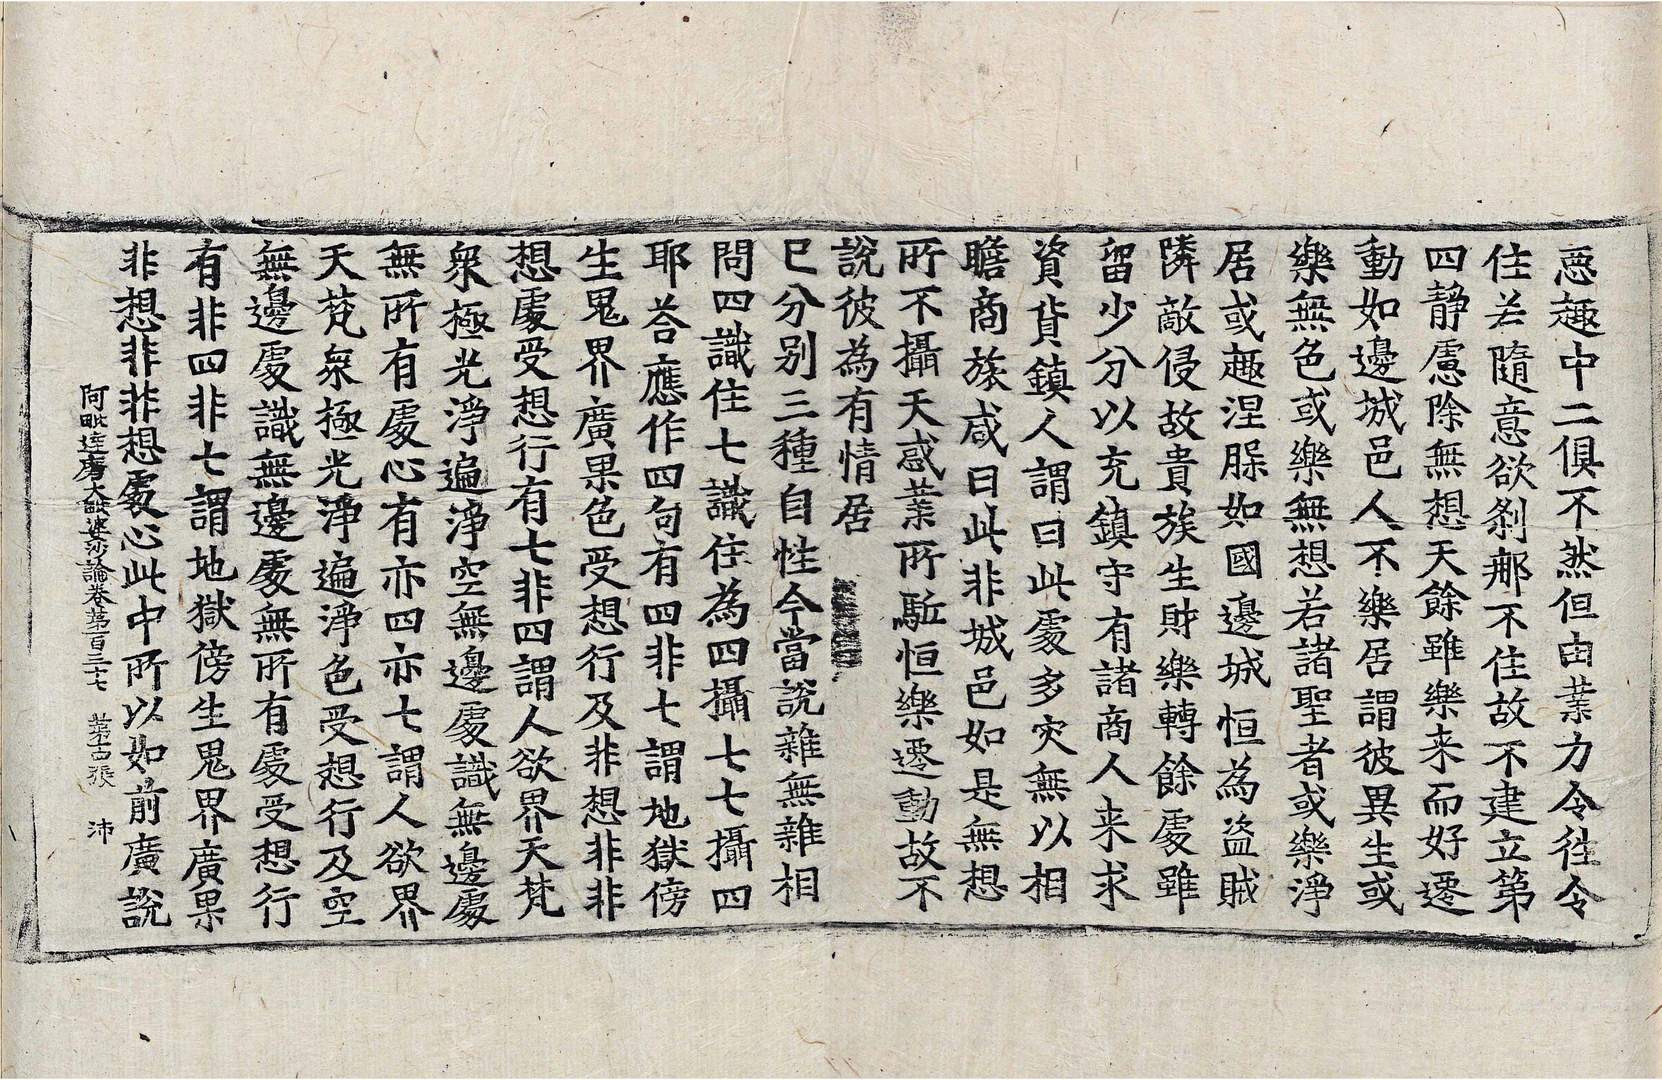 惡趣中二俱不然但由業力令往令
住若隨意欲剎那不住故不建立第
四靜慮除無想天餘雖樂来而好遷
動如邊城邑人不樂居謂彼異生或
樂無色或樂無想若諸聖者或樂淨
居或趣涅槃如國邊城恒為盜賊
隣敵侵故貴族生財樂轉餘處雖
留少分以充鎮守有諸商人来求
資貨鎮人謂曰此處多灾無以相
贍商旅咸曰此非城邑如是無想
所不攝天惑業所駈恒樂遷動故不
說彼為有情居
已分别三種自性今當說雜無雜相
問四識住七識住為四攝七七攝四
耶荅應作四句有四非七謂地獄傍
生鬼界廣果色受想行及非想非非
想處受想行有七非四謂人欲界天梵
衆極光淨遍淨空無邊處識無邊處
無所有處心有亦四亦七謂人欲界
天梵衆極光淨遍淨色受想行及空
無邊處識無邊處無所有處受想行
有非四非七謂地獄傍生鬼界廣果
非想非非想處心此中所以如前廣說
阿毗達磨大毗婆沙論卷第一百三十七 第十四張 沛